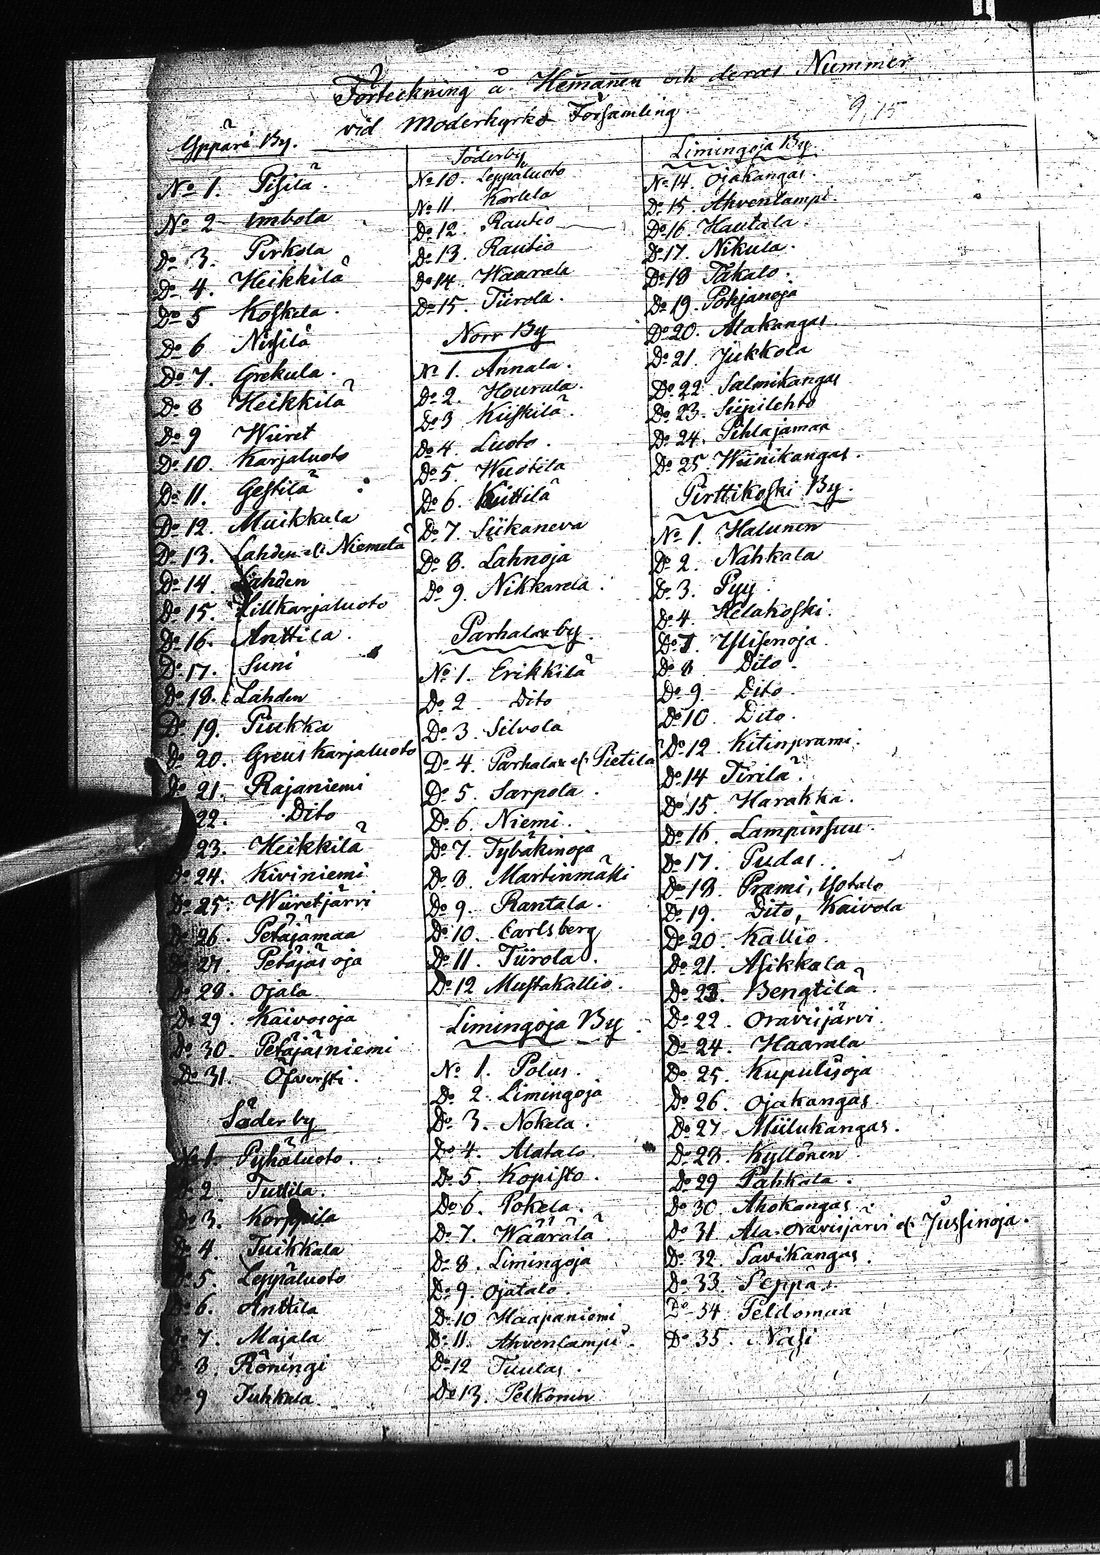 Förteckning å Hem̄anen och deras Nummer
vid Moderkyrko Församling.
9,15
Yppäri By.
No 1. Pihlilä.
No 2 Umbola
Do 3. Pirkola
Do 4. Heikkilä
Do 5 Koskela.
Do 6 Nissilä
Do 7. Grekula.
Do 8 Heikkilä
Do 9 Wiiret
Do 10. Karjaluoto
Do 11. Gestilä
Do 12. Muikkula
Do 13. Lahden el. Niemelä
Do 14. Lahden
Do 15. Lillkarjaluoto
Do 16. Anttila.
Do 17. Suni
Do 18. Lahden
Do 19. Piukka
Do 20. Greus Karjaluoto
Do 21. Rajaniemi
22. Dito
23. Heikkilä
Do 24. Kiviniemi
Do 25. Wiiretjärvi
Do 26. Petäjämaa
Do 27. Petäjäsoja
Do 28. Ojala
Do 29. Kaivosoja
Do 30. Petäjäsniemi
Do 31. Öfversti.
Söderby
No 1. Pyhäluoto.
Do 2. Tuttila.
Do 3. Korppila
Do 4. Tuikkala
Do 5. Leppäluoto
Do 6. Anttila
Do 7. Majala
Do 8. Röningi
Do 9 Tuhkala
Söderby
No 10. Leppäluoto
No 11. Karlela
Do 12. Rautio
Do 13. Rautio
Do 14. Waarala
Do 15. Tiirola.
Norr By
No 1. Annala.
Do 2. Hourula.
Do 3 Kiiskilä.
Do 4. Luoto.
Do 5. Wuotila
Do 6. Kittilä
Do 7. Siikaneva
Do 8. Lahnoja
Do 9. Nikkarela.
Parhalax by.
No 1. Erikkilä
Do 2. Dito
Do 3. Silvola
Do 4. Parhalax el. Pietilä
Do 5. Sarpola.
Do 6. Niemi.
Do 7. Tybäkinoja
Do 8. Martinmäki
Do 9. Rantala.
Do 10. Carlsberg
Do 11. Tiirola.
Do 12 Mustakallio.
Limingoja By.
No 1. Polus.
Do 2. Limingoja
Do 3. Nokela.
Do 4. Alatalo.
Do 5. Kopisto.
Do 6. Pokela.
Do 7. Wäärälä
Do 8. Limingoja
Do 9. Ojatalo.
Do 10 Haapaniemi
Do 11. Ahvenlampi.
Do 12 Tuulas.
Do 13. Pelkonen
Limingoja By
No 14. Ojakangas.
Do 15. Ahvenlampi.
Do 16. Hautala.
Do 17. Nikula.
Do 18 Takalo.
Do 19. Pohjanoja
Do 20. Alakangas.
Do 21. Jukkola
Do 22 Salmikangas
Do 23. Siipilehto
Do 24. Pihlajamaa
Do 25. Wiinikangas.
Pirttikoski By.
No 1. Halunen
Do 2. Nahkala
Do 3. Pyy
Do 4. Helakoski.
Do 7 Ylisenoja.
Do 8 Dito.
Do 9. Dito.
Do 10. Dito.
Do 12. Kitinprami.
Do 14 Tirilä.
Do 15. Harakka.
Do 16. Lampinsuu.
Do 17. Pudas.
Do 18. Prami, Yotalo
Do 19. Dito, Kaivola
Do 20. Kallio.
Do 21. Asikkala
Do 23. Bengtilä.
Do 22. Oravisjärvi.
Do 24. Haarala
Do 25. Kupulisoja
Do 26. Ojakangas
Do 27. Miilukangas.
Do 28. Kyllönen
Do 29 Pahkala.
Do 30. Ahokangas
Do 31. Ala-Oravisjarvi el. Jussinoja.
Do 32. Savikangas.
Do 33. Peppas
Do 34 Peldomaa
Do 35. Näsi